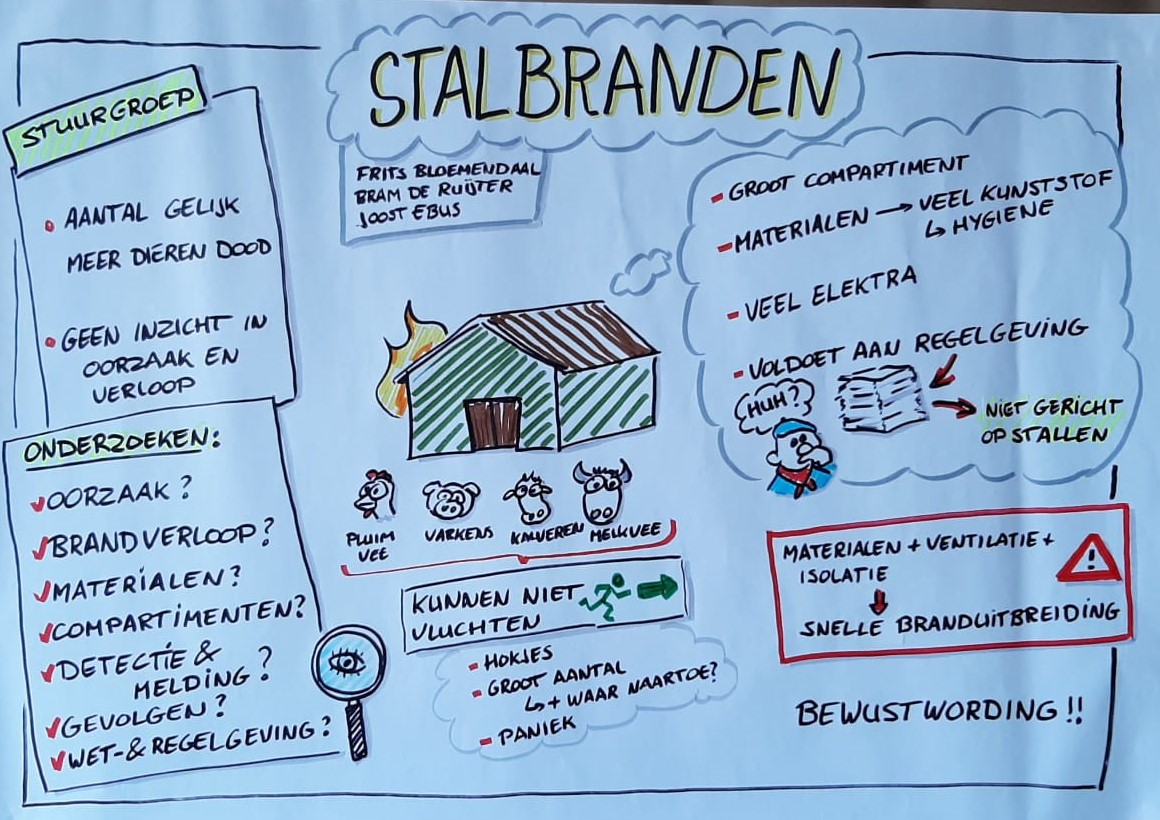 STALBRANDEN
FRITS BLOEMENDAAL
BRAM DE RUIJTER
JOOST EBUS
STUURGROEP
• AANTAL GELIJK
MEER DIEREN DOOD
• GEEN INZICHT IN
OORZAAK EN
VERLOOP
ONDERZOEKEN:
✓OORZAAK?
✓BRANDVERLOOP?
✓MATERIALEN?
✓COMPARTIMENTEN?
✓DETECTIE &
MELDING?
✓GEVOLGEN?
✓WET-& REGELGEVING?
PLUIM
VEE
VARKENS
KALVEREN
MELKVEE
KUNNEN NIET
VLUCHTEN
- HOKJES
- GROOT AANTAL
↳ + WAAR NAARTOE?
- PANIEK
- GROOT COMPARTIMENT
- MATERIALEN → VEEL KUNSTSTOF
↳ HYGIENE
- VEEL ELEKTRA
- VOLDOET AAN REGELGEVING
HUH?
→ NIET GERICHT
OP STALLEN
MATERIALEN + VENTILATIE +
ISOLATIE
!
SNELLE BRANDUITBREIDING
BEWUSTWORDING!!